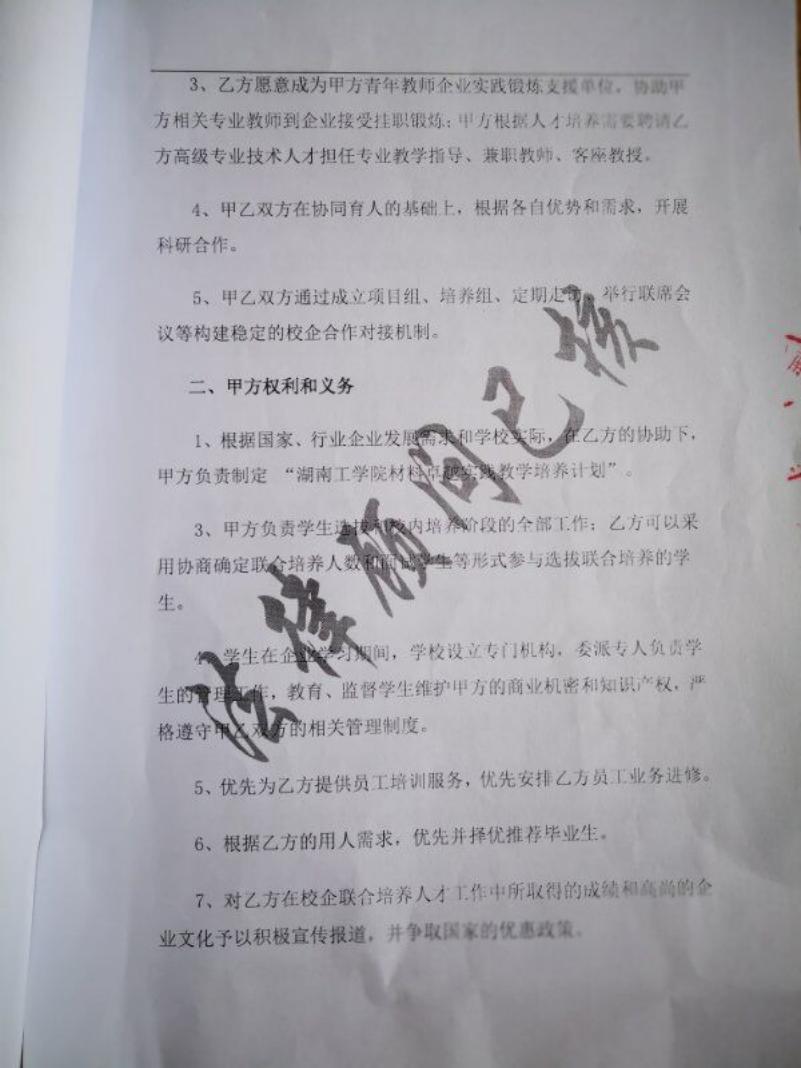 3、乙方愿意成为甲方青年教师企业实践锻炼支援单位。协助甲
方相关专业教师到企业接受挂职锻炼；甲方根据人才培养需要聘请乙
方高级专业技术人才担任专业教学指导、兼职教师、客座教授。
4、甲乙双方在协同育人的基础上，根据各自优势和需求，开展
科研合作。
5、甲乙双方通过成立项目组、培养组、定期走访、举行联席会
议等构建稳定的校企合作对接机制。
二、甲方权利和义务
1、根据国家、行业企业发展需求和学校实际，在乙方的协助下，
甲方负责制定 “湖南工学院材料卓越实践教学培养计划”。
3、甲方负责学生选拔和校内培养阶段的全部工作；乙方可以采
用协商确定联合培养人数和面试学生等形式参与选拔联合培养的学
生。
4、学生在企业学习期间，学校设立专门机构，委派专人负责学
生的管理工作，教育、监督学生维护甲方的商业机密和知识产权，严
格遵守甲乙双方的相关管理制度。
5、优先为乙方提供员工培训服务，优先安排乙方员工业务进修。
6、根据乙方的用人需求，优先并择优推荐毕业生。
7、对乙方在校企联合培养人才工作中所取得的成绩和高尚的企
业文化予以积极宣传报道，并争取国家的优惠政策。
法律顾问已核